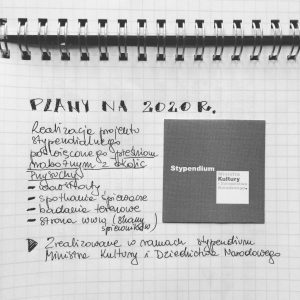 PLANY NA 2020 R.
Realizacja projektu
stypendialnego
poświęconego pieśniom
nabożnym z okolic
Przysuchy
- warsztaty
- spotkanie śpiewacze
- badania terenowe
- strona www (skany
śpiewników)
Stypendium
Ministra
Kultury
i Dziedzictwa
Narodowego
Zrealizowane w ramach stypendium
Ministra Kultury i Dziedzictwa Narodowego